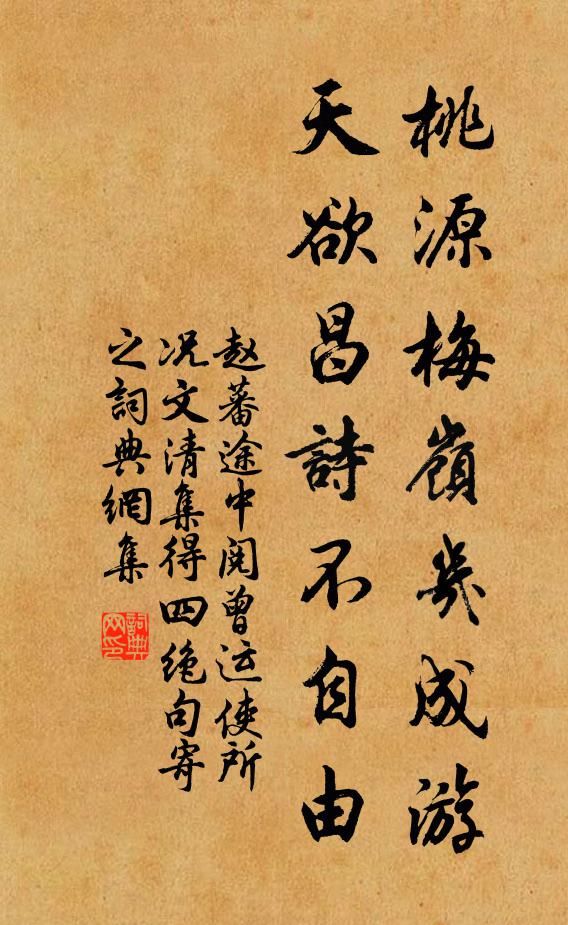 桃源梅嶺幾成游
天欲昌詩不自由
赵蕃途中閱曾运使所
况文清集得四绝句寄
之詞典網集
詞典
网印